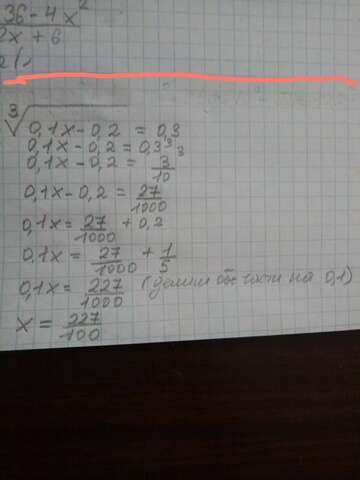 36 - 4x²
2x + 6
∛0,1x - 0,2 = 0,3
0,1x - 0,2 = 0,3³
0,1x - 0,2 = 3/10 ³
0,1x - 0,2 = 27/1000
0,1x = 27/1000 + 0,2
0,1x = 27/1000 + 1/5
0,1x = 227/1000 (делим обе части на 0,1)
x = 227/100